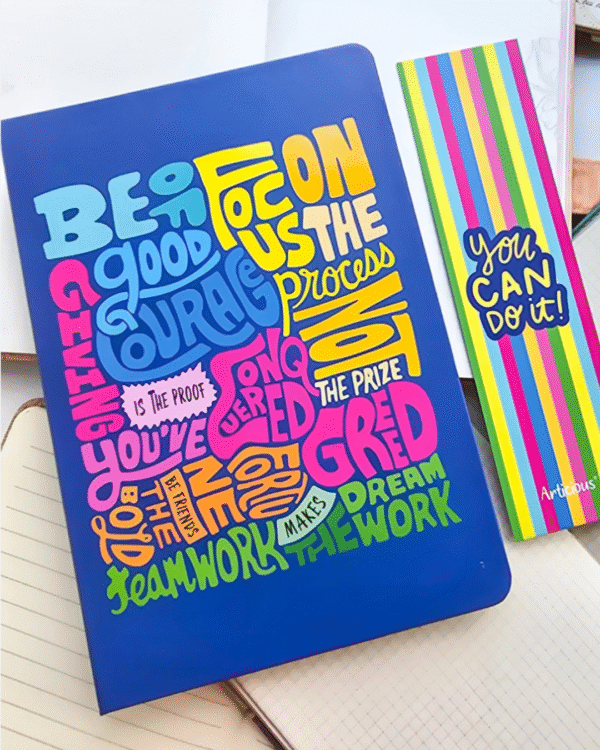 BE OF
good
COURAGE
FOCUS ON
THE
process
NOT
THE PRIZE
GIVING
IS THE PROOF
YOU'VE
CONQ
UERED
GREED
FORTU
NE
BE FRIENDS
THE
BOLD
teamWORK
MAKES
THE
DREAM
WORK
you
CAN
DO it!
Articious